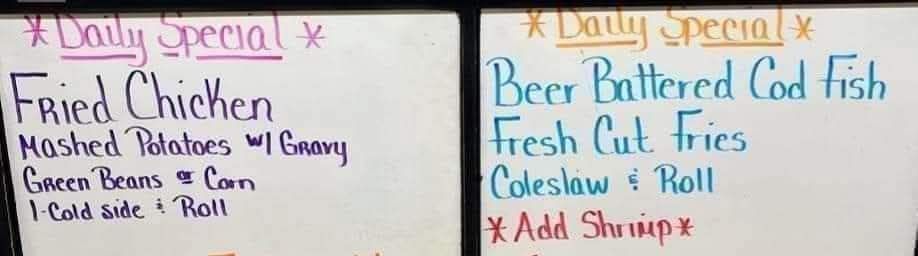 * Daily Special *
Fried Chicken
Mashed Potatoes w/ Gravy
Green Beans or Corn
1-Cold side & Roll
* Daily Special *
Beer Battered Cod Fish
Fresh Cut Fries
Coleslaw & Roll
*Add Shrimp*